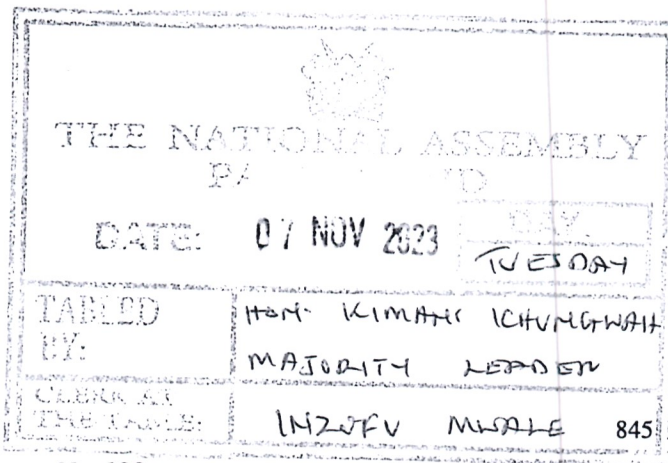 THE NATIONAL ASSEMBLY
DATE: 07 NOV 2023 DAY.
TUESDAY
TABLED BY: HON. KIMANI ICHUNGWAH
MAJORITY LEADER
CLERK AT THE TABLE: INZOFU MWALE 845